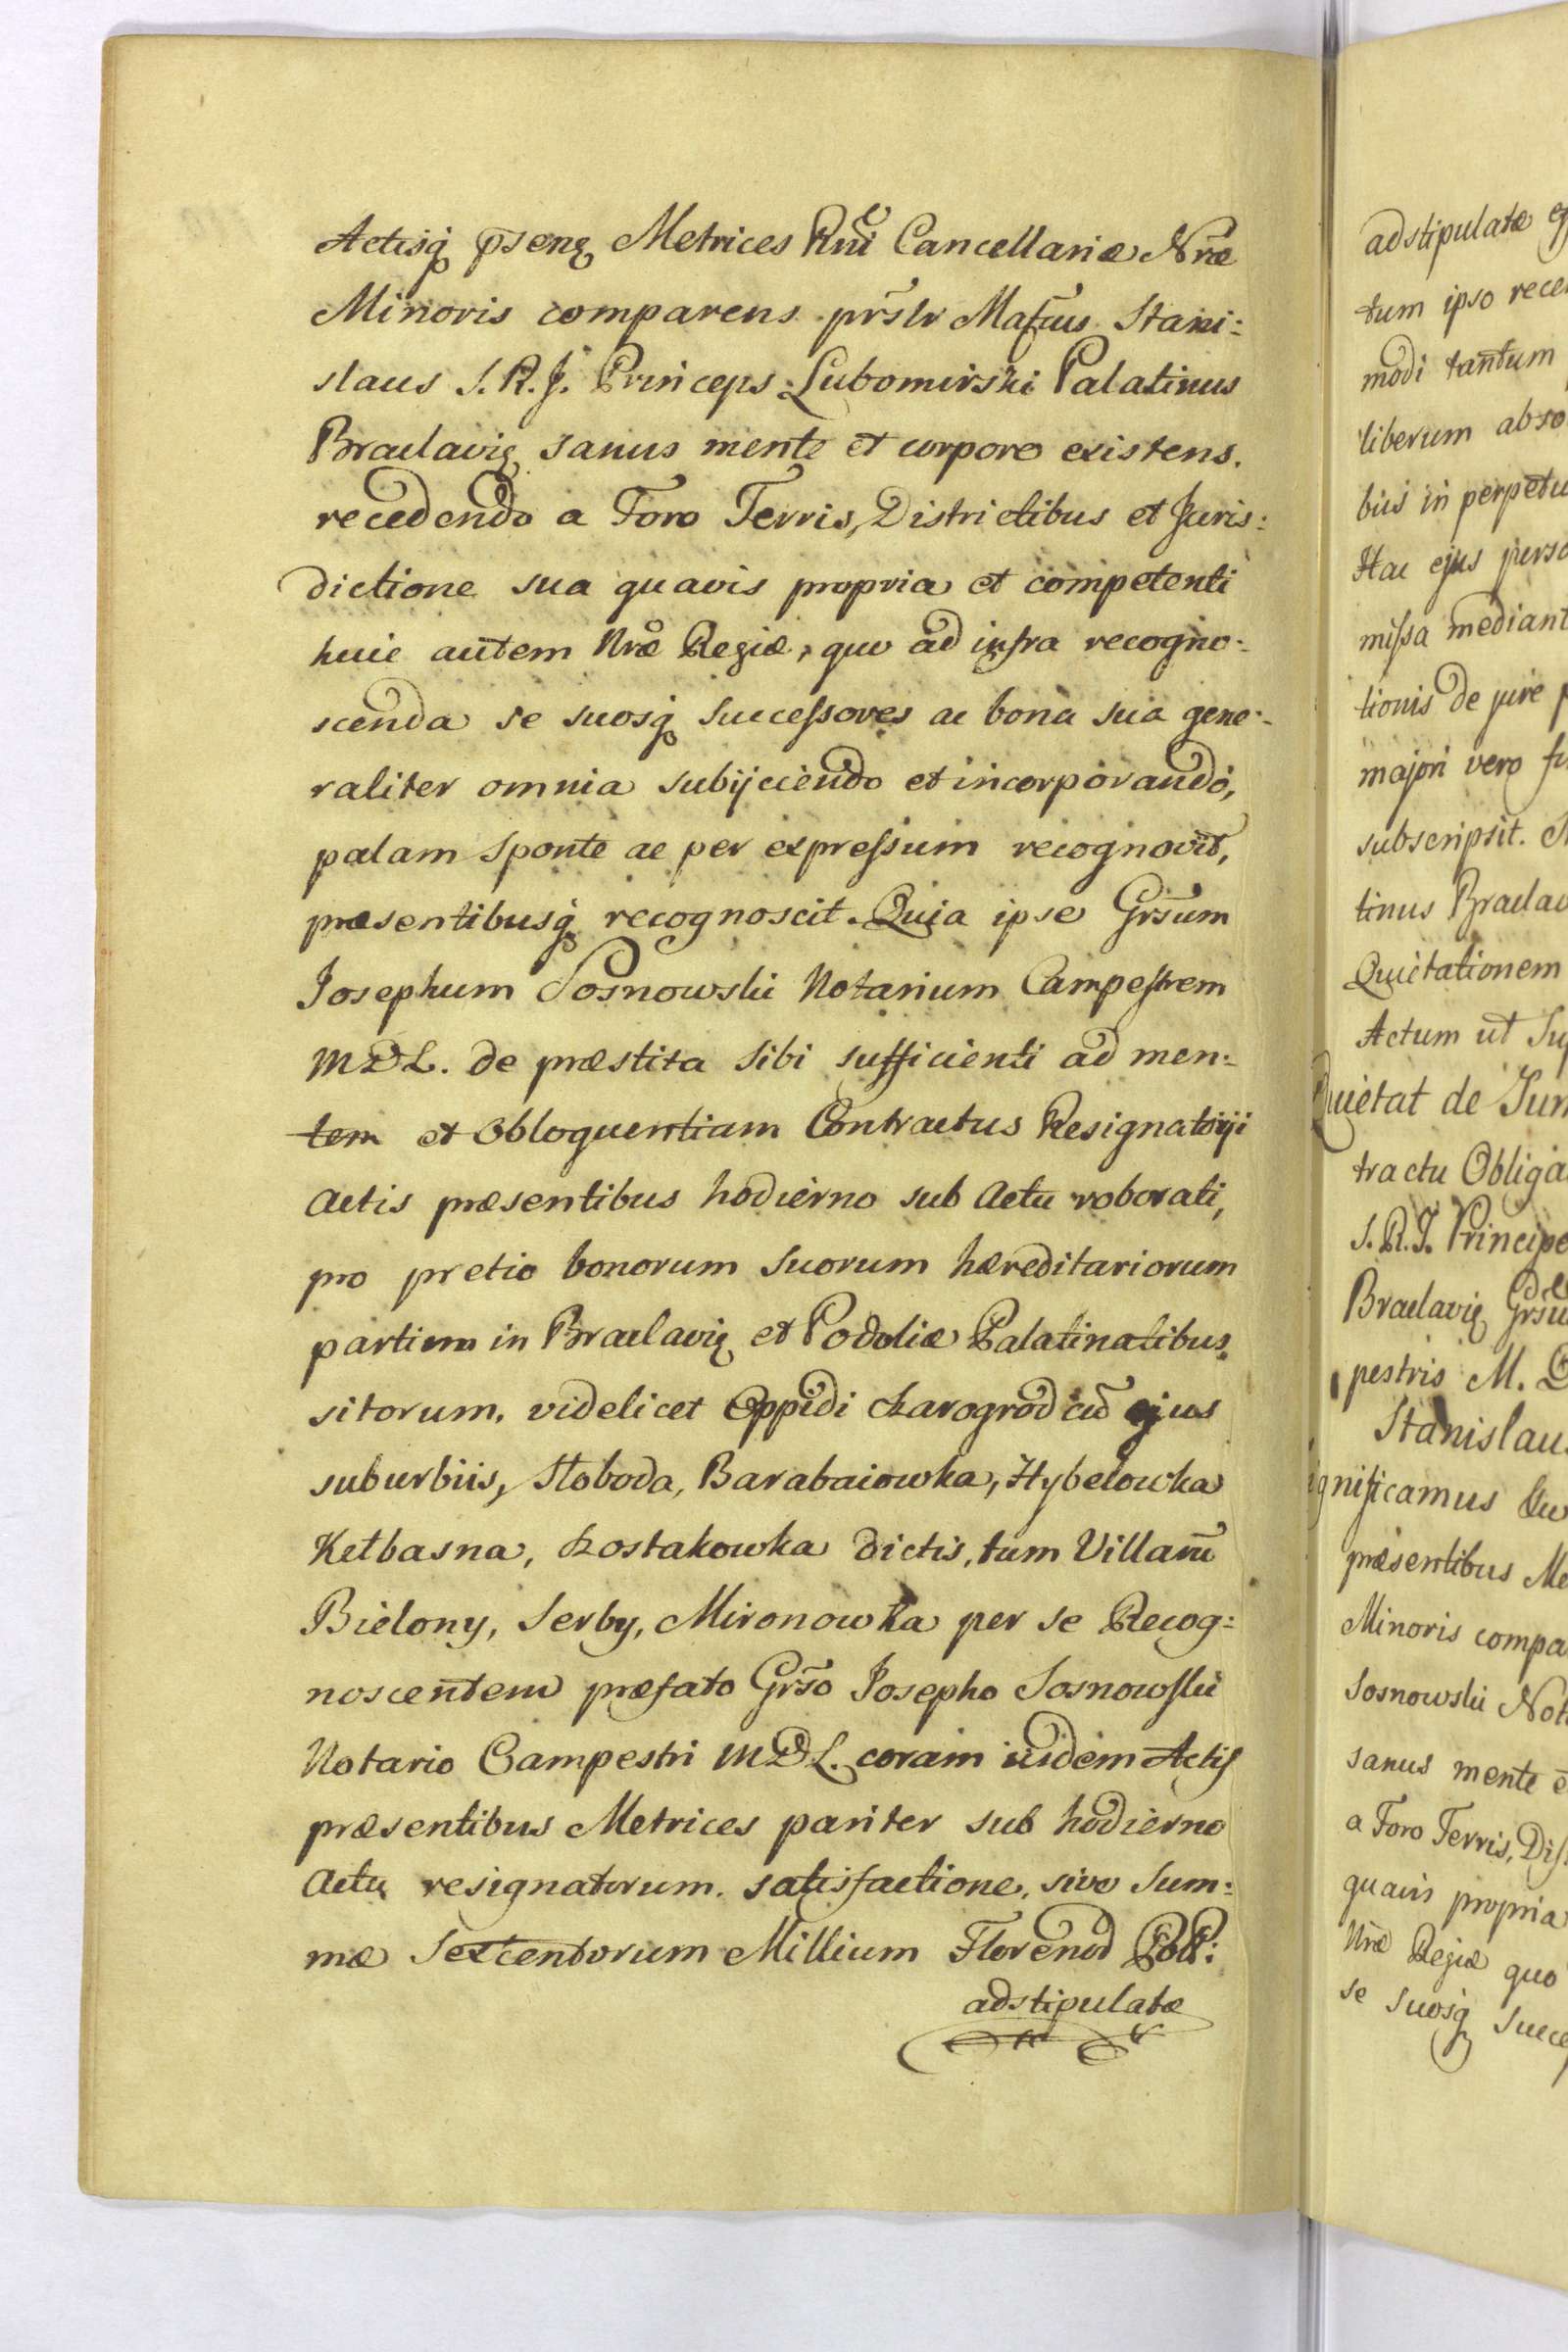 Actisq pseng Metrices Rni Cancellariæ Nræ
Minoris comparens prslr Mafcus Stani:
slaus S.R.J. Princeps Lubomirski Palatinus
Braclavię sanus mente et corpore existens.
recedendo a Foro Terris, Districtibus et Juris:
dictione sua quavis propria et competenti
huic autem Nræ Regiæ, quo ad infra recogno:
scenda se suosq Successores ac bona sua gene:
raliter omnia subijciendo et incorporando,
palam sponte ac per expressum recognovit,
præsentibusq recognoscit. Quia ipse Grsum
Josephum Sosnowski Notarium Campestrem
MDL. de præstita sibi sufficienti ad men:
tem et Obloquentiam Contractus Resignatorii
Actis præsentibus hodierno sub Actu roborati,
pro pretio bonorum suorum hæreditariorum
partim in Braclavię et Podoliæ Palatinatibus
sitorum, videlicet Oppidi Szarogrod cũ ejus
suburbiis, Słoboda, Barabaiowka, Hybelowka
Kełbasna, Łostakowka dictis, tum Villarũ
Bielony, Serby, Mironowka per se Recog:
noscentem præfato Grso Josepho Sosnowski
Notario Campestri MDL. coram iisdem Actis
præsentibus Metrices pariter sub hodierno
Actu resignatorum. satisfactione, sive Sum:
mæ Sexcentorum Millium Florenod Poll:
adstipulatæ
adstipulatæ
tum ipso
modi tantum
liberum
bus in
Hac ejus
missa
tionis de jure
majori vero
subscripsit.
tinus
Quietationem
Actum ut
Quietat de
tractu
S.R.J.
Braclavię
pestris M.
Stanislaus
præsentibus
Minoris
Sosnowski
sanus mente
a Foro Terris,
quavis propria
Nræ Regiæ quo
se suosq